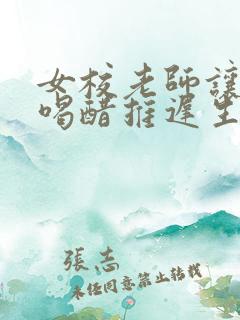 女校老師讓
喝醋推遲生
張志
未經同意禁止轉載